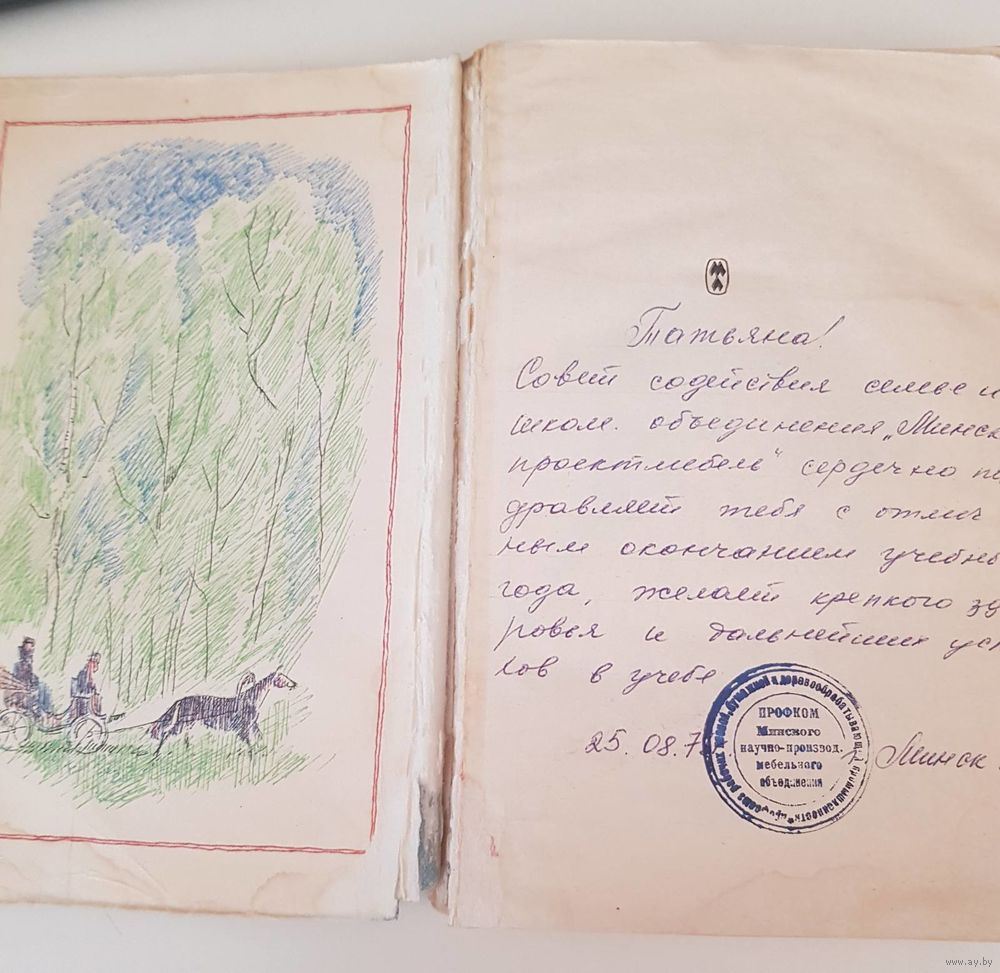 Татьяна!
Совет содействия семье и
школе. объединения „Минск
проектмебель" сердечно по
дравляет тебя с отлич
ным окончанием учебно
года, желает крепкого здо
ровья и дальнейших усп
хов в учебе
25. 08. 7
Минск
ПРОФКОМ
Минского
научно-производ.
мебельного
объединения
рабочих лесной, бумажной и деревообрабатывающей промышленности
www.ay.by